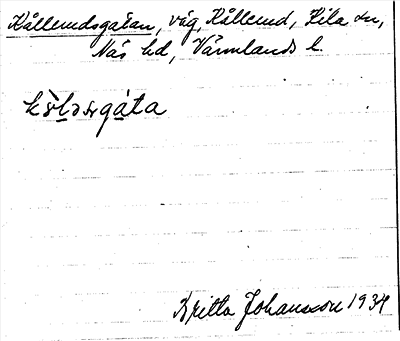 Kållerudsgatan, väg, Kållerud, Kila sn,
Näs hd, Värmlands l.
kɔ̀lərgáta
Britta Johansson 1934